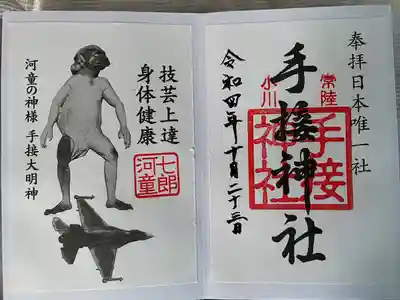 奉拝日本唯一社
常陸
小川
手接神社
手接神社
令和四年十月二十三日
技芸上達
身体健康
七郎河童
河童の神様 手接大明神